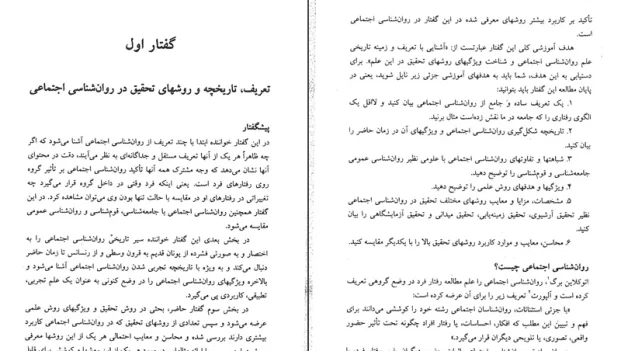 گفتار اول
تعریف، تاریخچه و روشهای تحقیق در روان‌شناسی اجتماعی
پیشگفتار
در این گفتار خواننده ابتدا با چند تعریف از روان‌شناسی اجتماعی آشنا می‌شود که اگر
چه ظاهراً هر یک از آنها تعریف مستقل و جداگانه‌ای به نظر می‌آیند، دقت در محتوای
آنها نشان می‌دهد که وجه مشترک همه آنها تأکید روان‌شناسی اجتماعی بر تأثیر گروه
روی رفتارهای فرد است. یعنی اینکه فرد وقتی در داخل گروه قرار می‌گیرد چه
تغییراتی در رفتارهای او در مقایسه با حالت تنها بودن وی می‌توان مشاهده کرد. در این
گفتار همچنین روان‌شناسی اجتماعی با جامعه‌شناسی، قوم‌شناسی و روان‌شناسی عمومی
مقایسه می‌شود.
در بخش بعدی این گفتار خواننده سیر تاریخی روان‌شناسی اجتماعی را به
اختصار و به صورتی فشرده از یونان قدیم به قرون وسطی و از رنسانس تا زمان حاضر
دنبال می‌کند و به ویژه با تاریخچه تجربی شدن روان‌شناسی اجتماعی آشنا می‌شود و
بالاخره ویژگیهای روان‌شناسی اجتماعی را در وضع کنونی به عنوان یک علم تجربی،
تطبیقی، کاربردی پی می‌گیرد.
در بخش سوم گفتار حاضر، بحثی در روش تحقیق و ویژگیهای روش علمی
عرضه می‌شود و سپس تعدادی از روشهای تحقیق که در روان‌شناسی اجتماعی کاربرد
بیشتری دارند بررسی شده و محاسن و معایب احتمالی هر یک از این روشها معرفی
تأکید بر کاربرد بیشتر روشهای معرفی شده در این گفتار در روان‌شناسی اجتماعی
است.
هدف آموزشی کلی این گفتار عبارتست از: «آشنایی با تعریف و زمینه تاریخی
علم روان‌شناسی اجتماعی و شناخت ویژگیهای روشهای تحقیق در این علم». برای
دستیابی به این هدف، شما باید به هدفهای آموزشی جزئی زیر نایل شوید، یعنی در
پایان مطالعه این گفتار باید بتوانید:
۱. یک تعریف ساده و جامع از روان‌شناسی اجتماعی بیان کنید و لااقل یک
الگوی رفتاری را که جامعه در ما نقش زده‌است مثال بزنید.
۲. تاریخچه شکل‌گیری روان‌شناسی اجتماعی و ویژگیهای آن در زمان حاضر را
بیان کنید.
۳. شباهتها و تفاوتهای روان‌شناسی اجتماعی با علومی نظیر روان‌شناسی عمومی
جامعه‌شناسی و قوم‌شناسی را توضیح دهید.
۴. ویژگیها و هدفهای روش علمی را توضیح دهید.
۵. مشخصات، مزایا و معایب روشهای مختلف تحقیق در روان‌شناسی اجتماعی
نظیر تحقیق آرشیوی، تحقیق زمینه‌یابی، تحقیق میدانی و تحقیق آزمایشگاهی را بیان
کنید.
۶. محاسن، معایب و موارد کاربرد روشهای تحقیق بالا را با یکدیگر مقایسه کنید.
روان‌شناسی اجتماعی چیست؟
اتوکلاین برگ، روان‌شناسی اجتماعی را علم مطالعه رفتار فرد در وضع گروهی تعریف
کرده است و آلپورت تعریف زیر را برای آن عرضه کرده است:
«با جزئی استثنائات، روان‌شناسان اجتماعی رشته خود را کوششی می‌دانند برای
فهم و تبیین این مطلب که افکار، احساسات، یا رفتار افراد چگونه تحت تأثیر حضور
واقعی، تصوری، یا تلویحی دیگران قرار می‌گیرد»